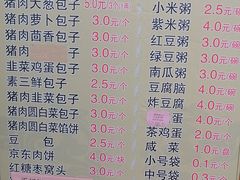 猪肉大葱包子 5.0元/3个
猪肉萝卜包子 3.0元/个
猪肉茴香包子 3.0元/个
猪肉 子 3.0元/个
韭菜鸡蛋包子 3.0元/个
素三鲜包子 2.5元/个
猪肉韭菜包子 3.0元/个
猪肉圆白菜包子 3.0元/个
猪肉圆白菜馅饼 3.0元/个
豆包 2.0元/个
京东肉饼 4.0元/块
红糖枣窝头 3.0元/个
小米粥 2.5元/碗
紫米粥 3.0元/碗
红豆粥 3.0元/碗
绿豆粥 3.0元/碗
南瓜粥 3.0元/碗
豆腐脑 4.0元/碗
炸豆腐 4.0元/碗
蛋 2.0元/个
茶鸡蛋 2.0元/个
咸菜 1.0元
小号袋 0.1元/个
中号袋 0.3元/个